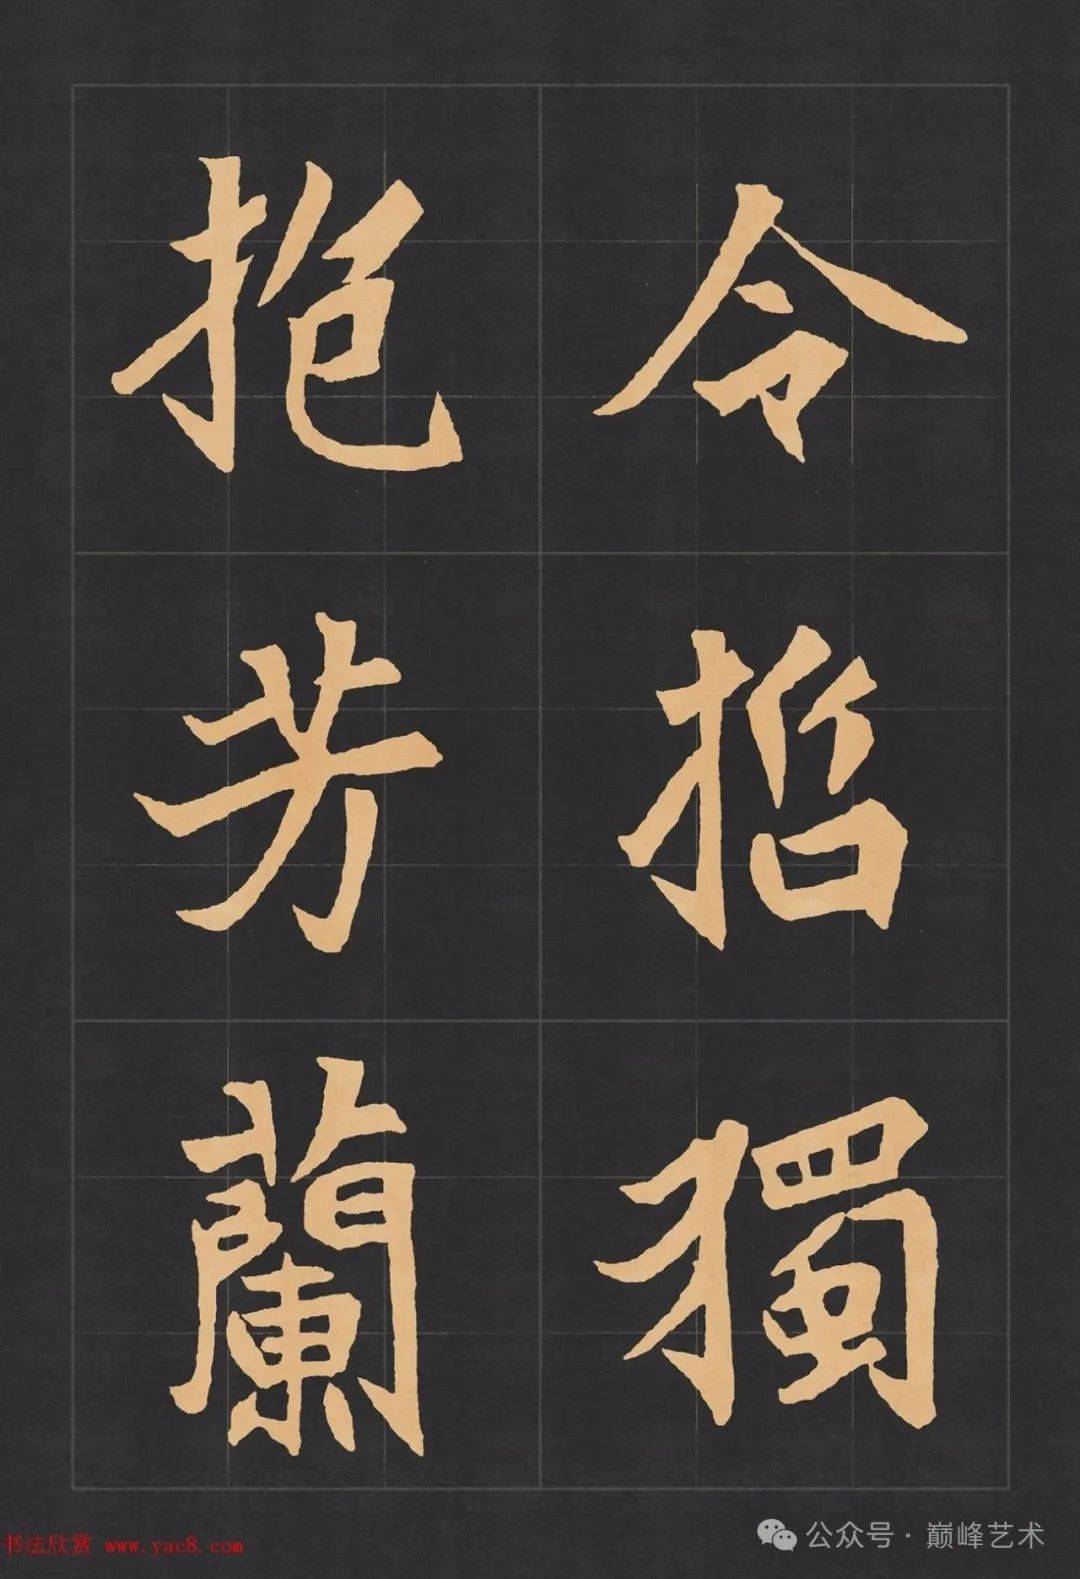 令哲獨
抱芳蘭
书法欣赏 www.yac8.com
公众号·巅峰艺术